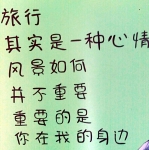 旅行
其实是一种心情
风景如何
并不重要
重要的是
你在我的身边